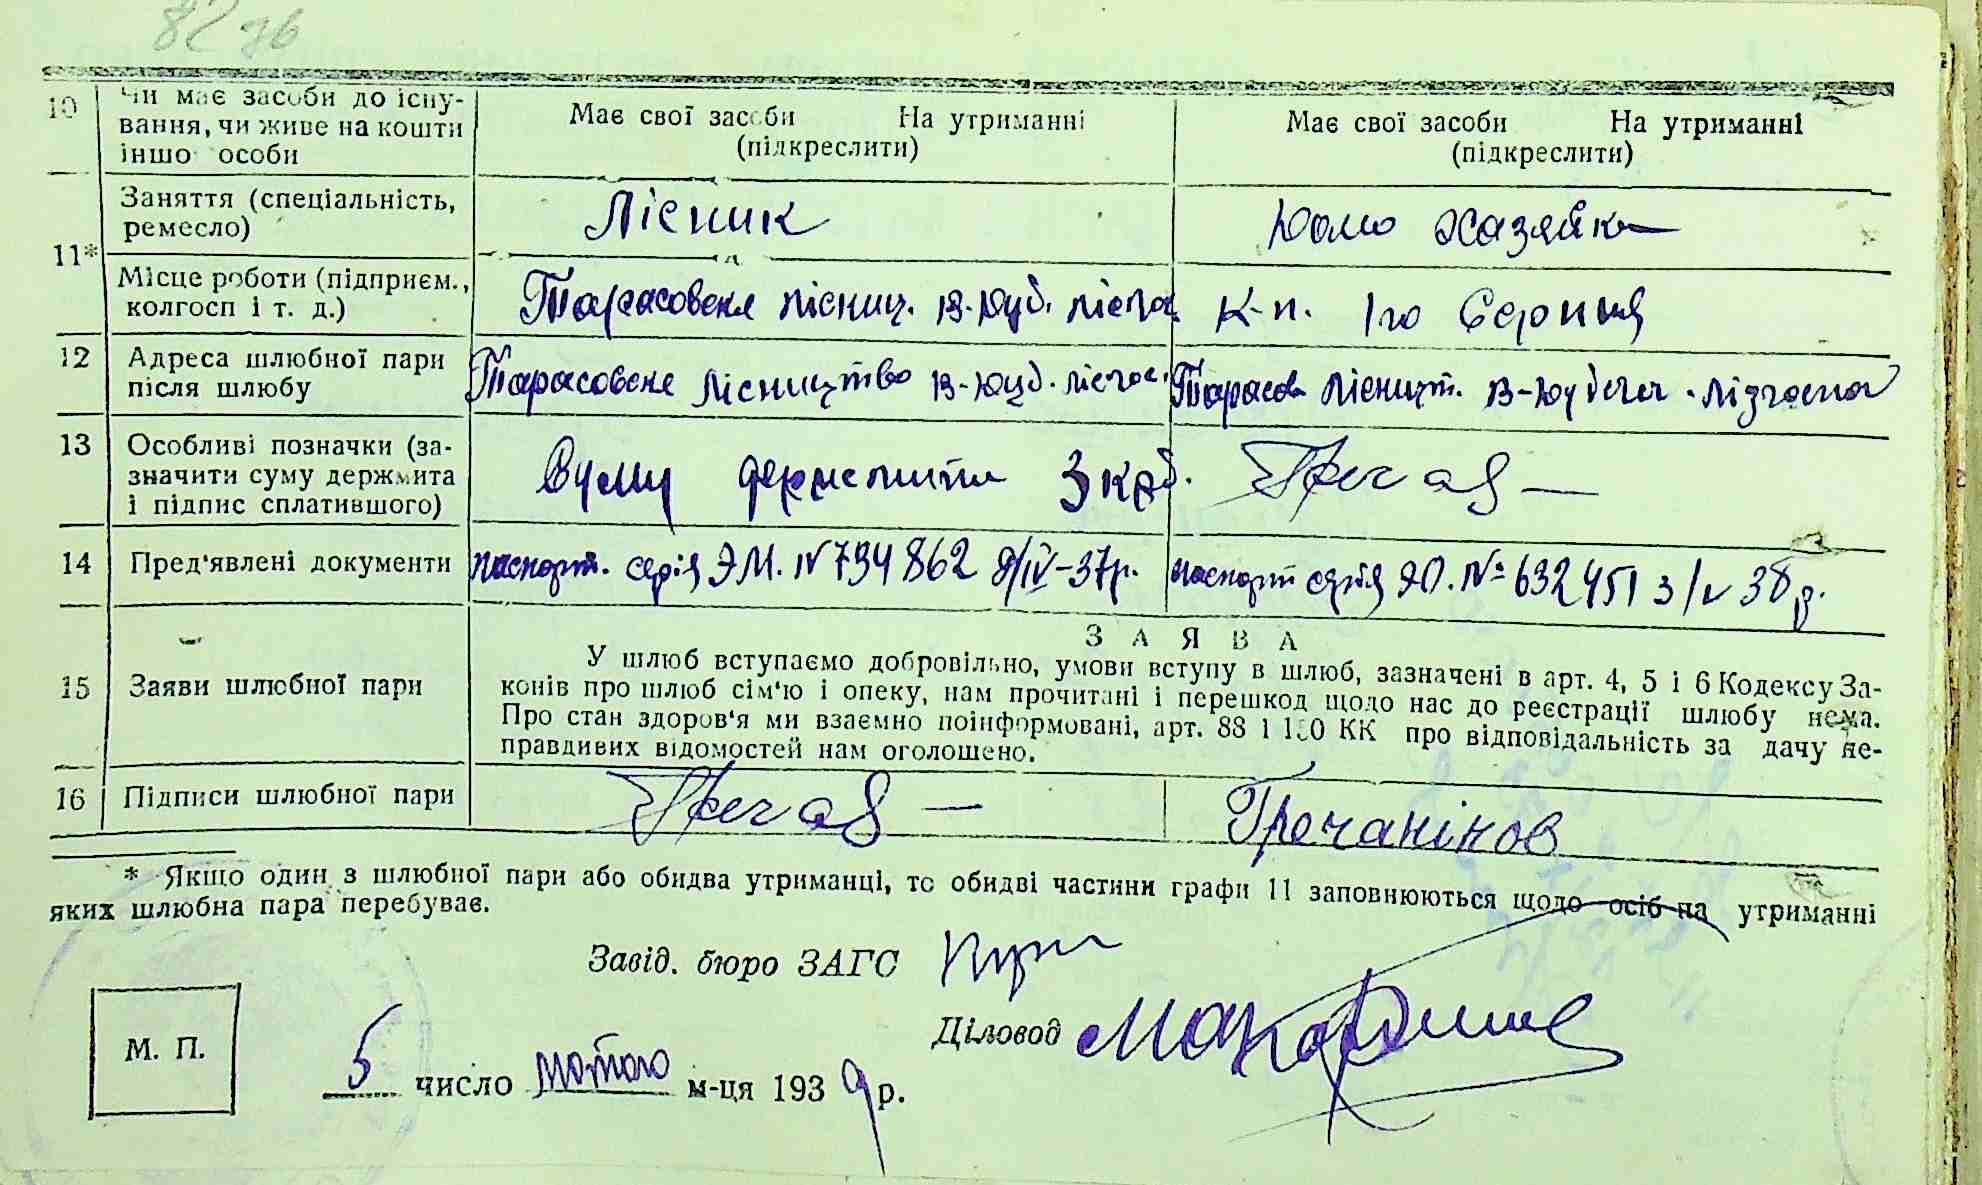 82 зв
10 Чи має засоби до існу-
вання, чи живе на кошти
іншо особи
Має свої засоби На утриманні
(підкреслити)
Має свої засоби На утриманні
(підкреслити)
11*
Заняття (спеціальність,
ремесло)
Лісник
Домо хазяйка
Місце роботи (підприєм.,
колгосп і т. д.)
Тарасовське лісниц. В-Буб. лісгос.
к-п. 1го Серпня
12 Адреса шлюбної пари
після шлюбу
Тарасовське лісництво
Тарасов лісницт.
13 Особливі позначки (за-
значити суму держмита
і підпис сплатившого)
Суму держмита 3 крб.
14 Пред'явлені документи
паспорт. серія ЭМ. N 734862 9/IV-37р.
паспорт серія ЯО. № 632451 3/V 38 р.
15 Заяви шлюбної пари
ЗАЯВА
У шлюб вступаємо добровільно, умови вступу в шлюб, зазначені в арт. 4, 5 і 6 Кодексу За-
конів про шлюб сім'ю і опеку, нам прочитані і перешкод щодо нас до реєстрації шлюбу нема.
Про стан здоров'я ми взаємно поінформовані, арт. 88 і 190 КК про відповідальність за дачу не-
правдивих відомостей нам оголошено.
16 Підписи шлюбної пари
Гречанінов
* Якщо один з шлюбної пари або обидва утриманці, то обидві частини графи 11 заповнюються щодо осіб на утриманні
яких шлюбна пара перебуває.
Завід. бюро ЗАГС
Діловод
М. П.
5 число лютого м-ця 1939 р.